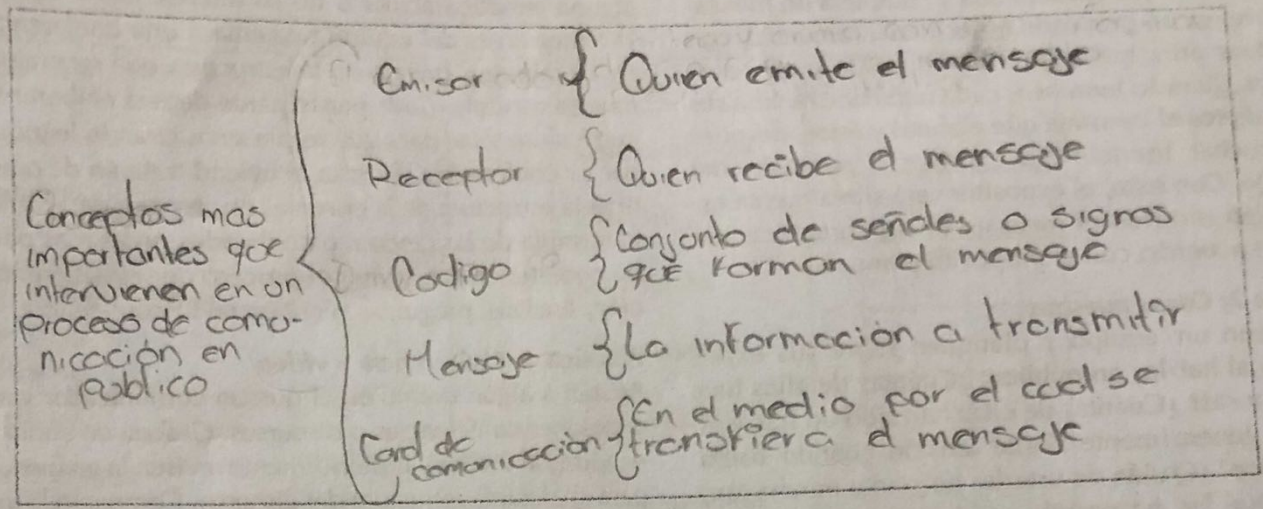 Conceptos mas
importantes que
intervienen en un
proceso de comu-
nicación en
público
Emisor { Quien emite el mensaje
Receptor { Quien recibe el mensaje
Codigo { Conjunto de señales o signos
que forman el mensaje
Mensaje { La información a transmitir
Canal de
comunicación { En el medio por el cual se
transfiera el mensaje